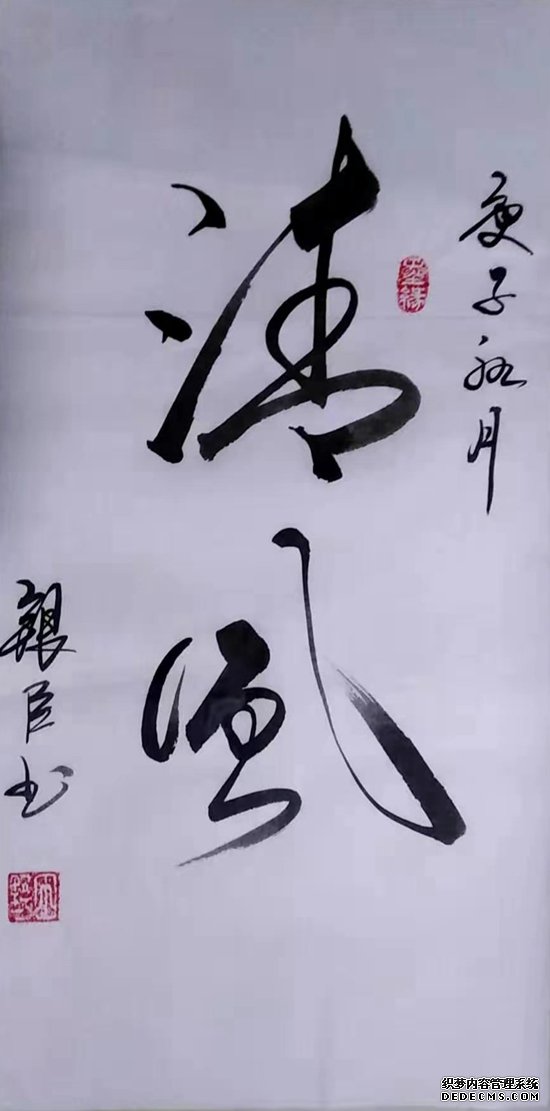 庚子秋月
清風
墨缘
銀臣书
织梦内容管理系统
DEDECMS.COM